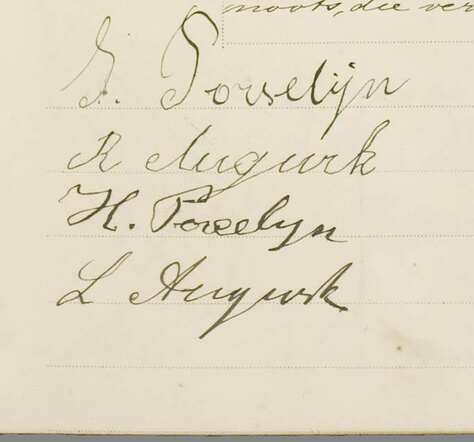 moots, die ver
J. Porselijn
R Augurk
H. Porcelyn
L Augurk